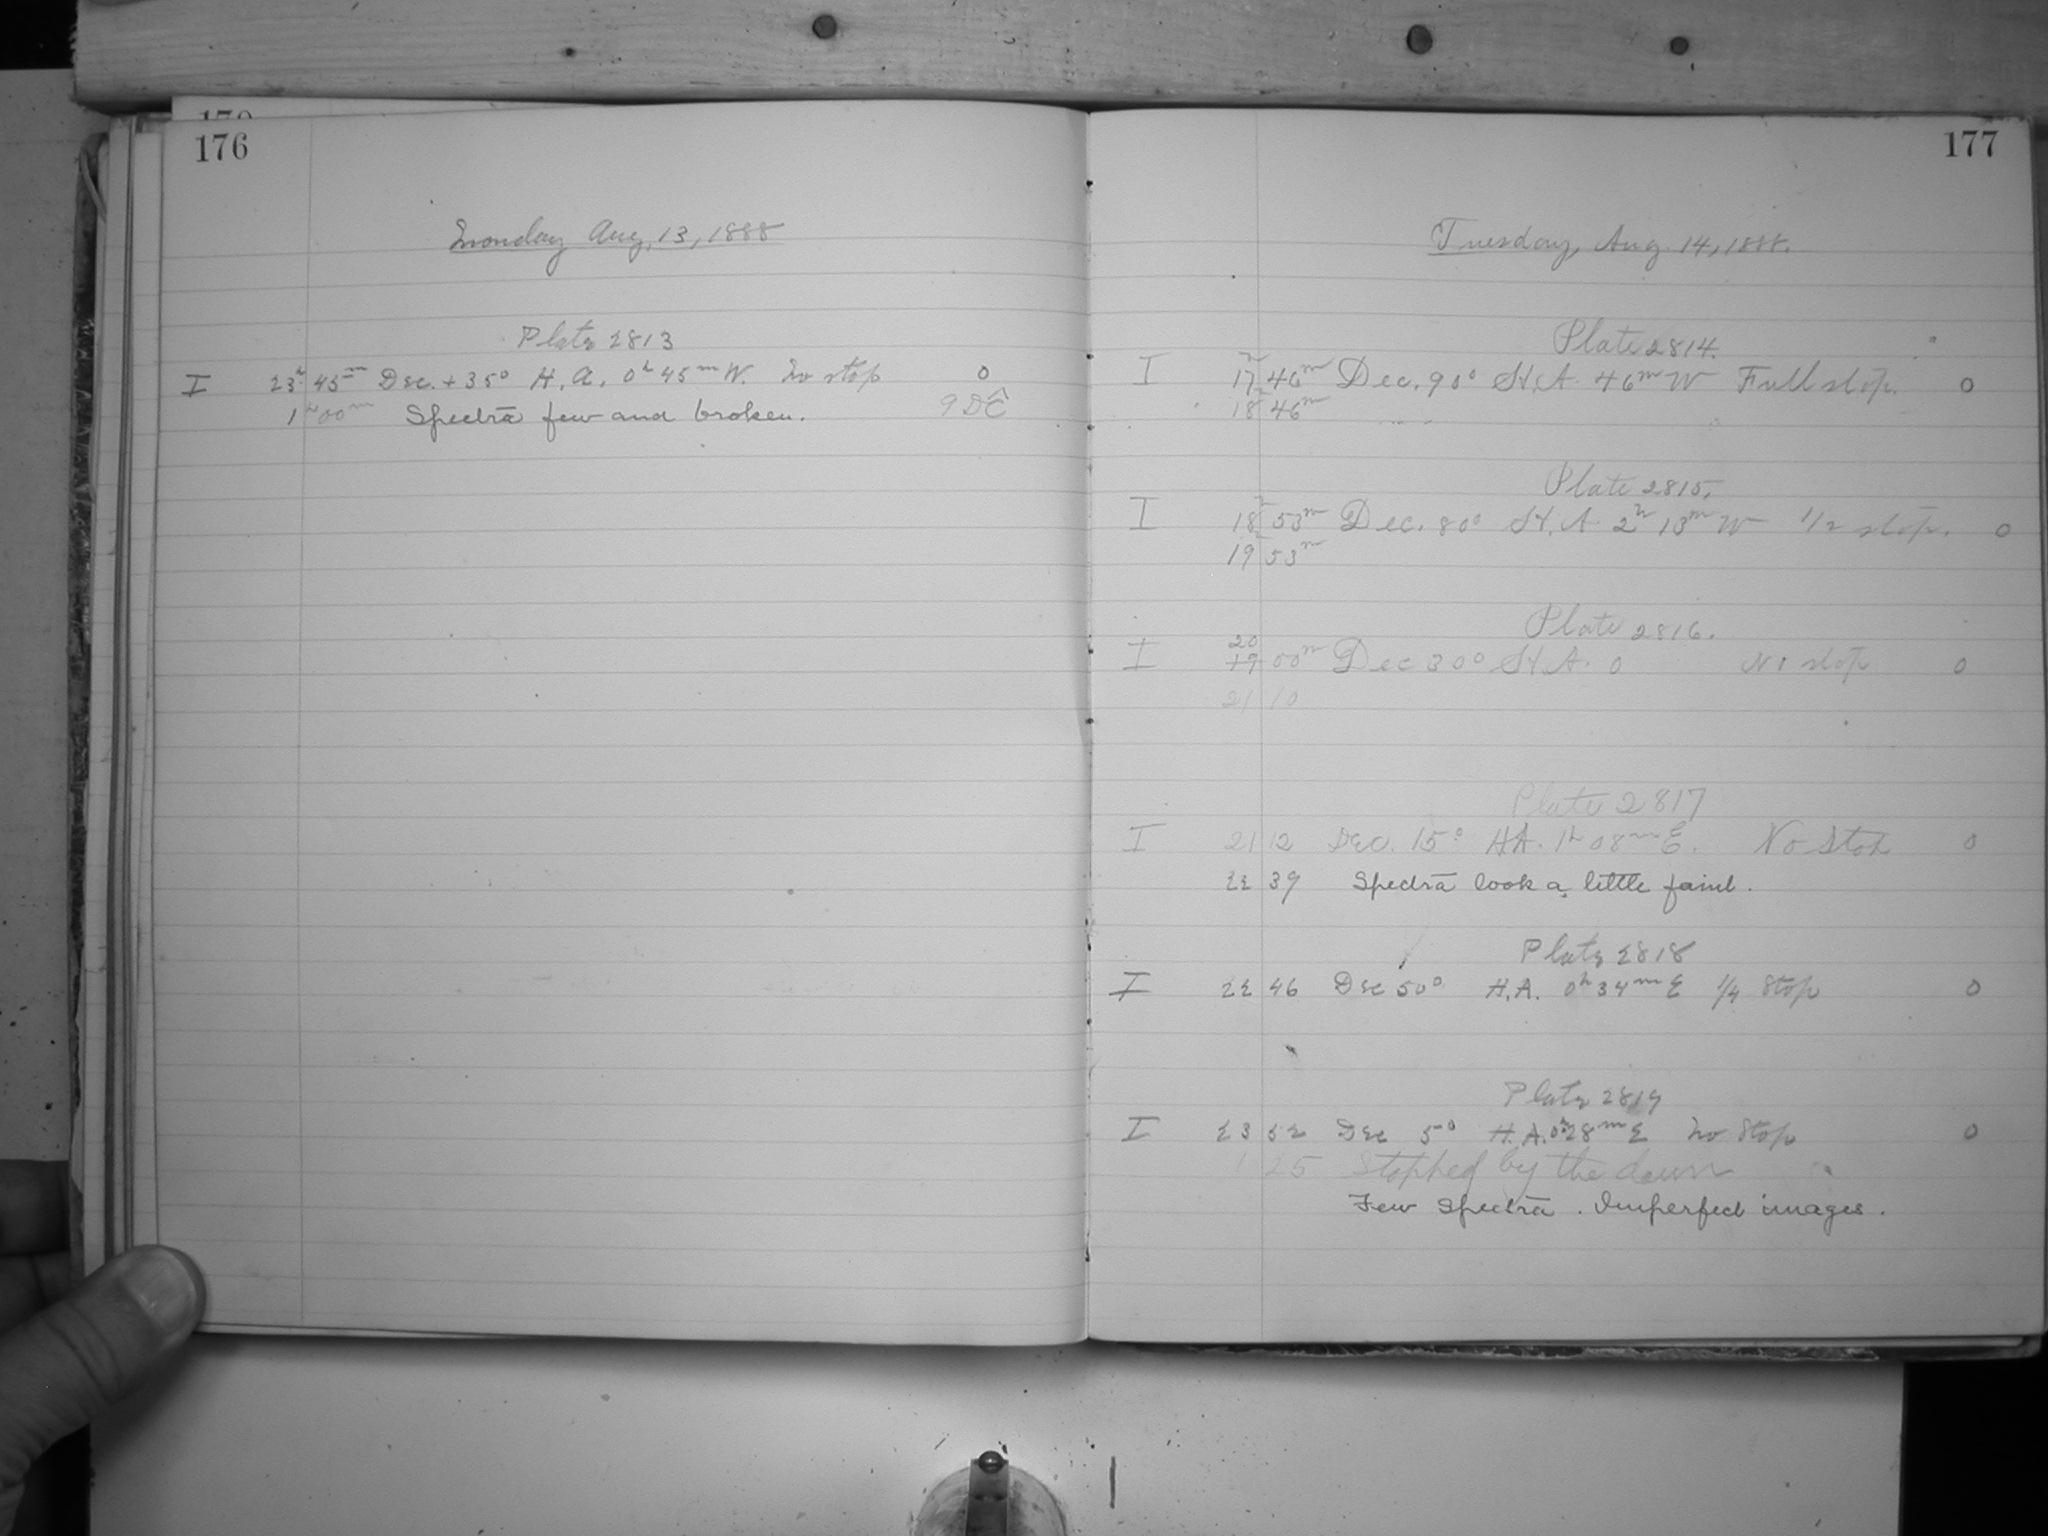 176
Monday Aug. 13, 1888
Plate 2813
I 23h 45m Dec. +35° H. A. 0h 45m W. No stop 0
1h 00m Spectra few and broken.
177
Tuesday, Aug. 14, 1888.
Plate 2814.
I 17h 46m Dec. 90° H.A. 46m W Full stop. 0
18h 46m
Plate 2815.
I 18h 53m Dec. 80° H.A. 2h 13m W 1/2 stop. 0
19h 53m
Plate 2816.
20
I 19 00m Dec 30° H.A. 0 No stop 0
21 10
Plate 2817
I 21 12 Dec. 15° HA. 1h 08m E. No Stop 0
22 39 Spectra look a little faint.
Plate 2818
I 22 46 Dec 50° H.A. 0h 34m E 1/4 Stop 0
Plate 2819
I 23 52 Dec 5° H.A. 0h 28m E No Stop 0
1 25 Stopped by the dawn
Few Spectra. Imperfect images.